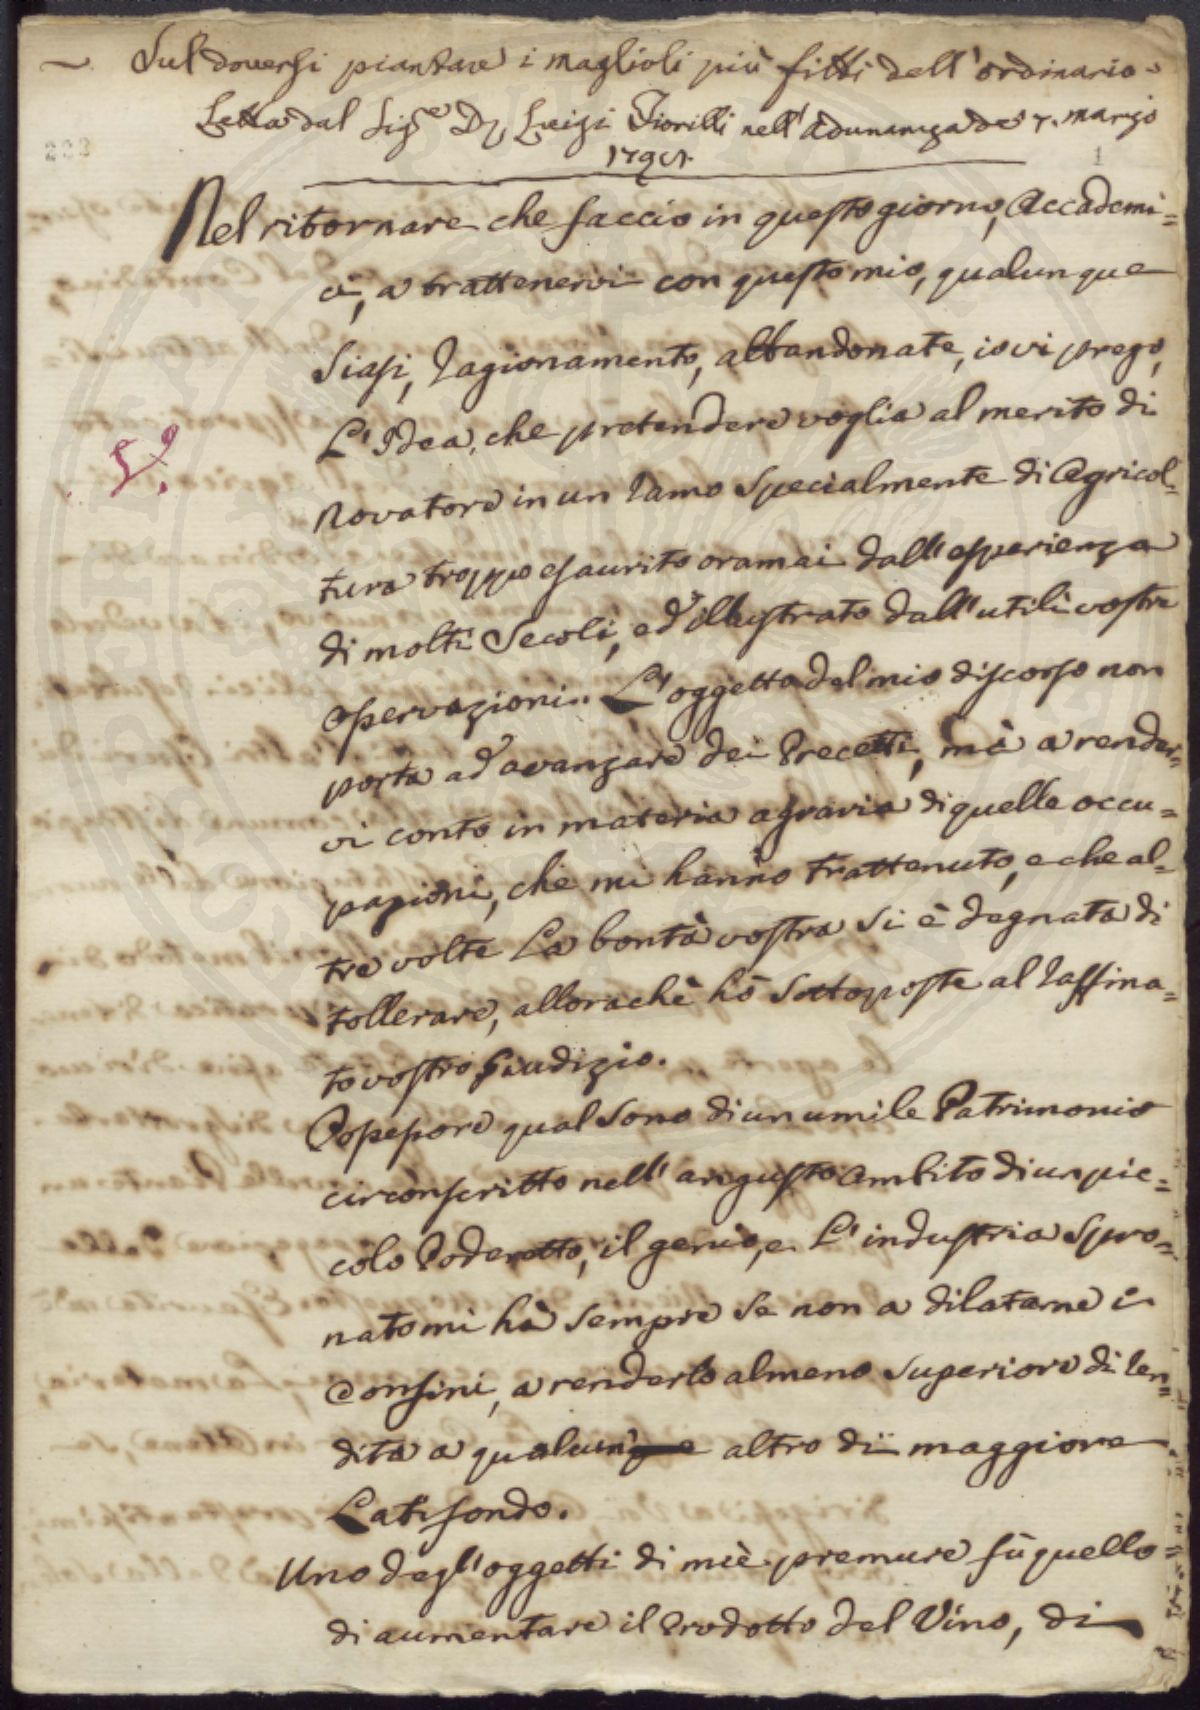 Sul doversi piantare i maglioli più fitti dell'ordinario
Letta dal Sig.re D. Luigi Fiorilli nell'Adunanza de' 7. marzo
1
Nel ritornare che faccio in questo giorno, Accademi=
ci, a trattenervi con questo mio, qualunque
siasi, ragionamento, abbandonate, io vi prego,
L'Idea, che pretendere voglia al merito di
Novatore in un ramo specialmente di Agricol=
tura troppo esaurito oramai dall'esperienza
di molti Secoli, ed illustrato dall'utili vostre
osservazioni. L'oggetto del mio discorso non
porta ad avanzare dei Precetti, mà a render=
vi conto in materia agraria di quelle occu=
pazioni, che mi hanno trattenuto, e che al=
tre volte La bontà vostra si è degnata di
tollerare, allorachè hò sottoposte al raffina=
to vostro giudizio.
Possessore qual sono di un umile Patrimonio
circonscritto nell'angusto ambito di un pic=
colo Poderetto, il genio, e L'industria spro=
nato mi hà sempre se non a dilatarne i
Confini, a renderlo almeno superiore di ren=
dita a qualunque altro di maggiore
Latifondo.
Uno degl'oggetti di mie premure fù quello
di aumentare il Prodotto del Vino, di